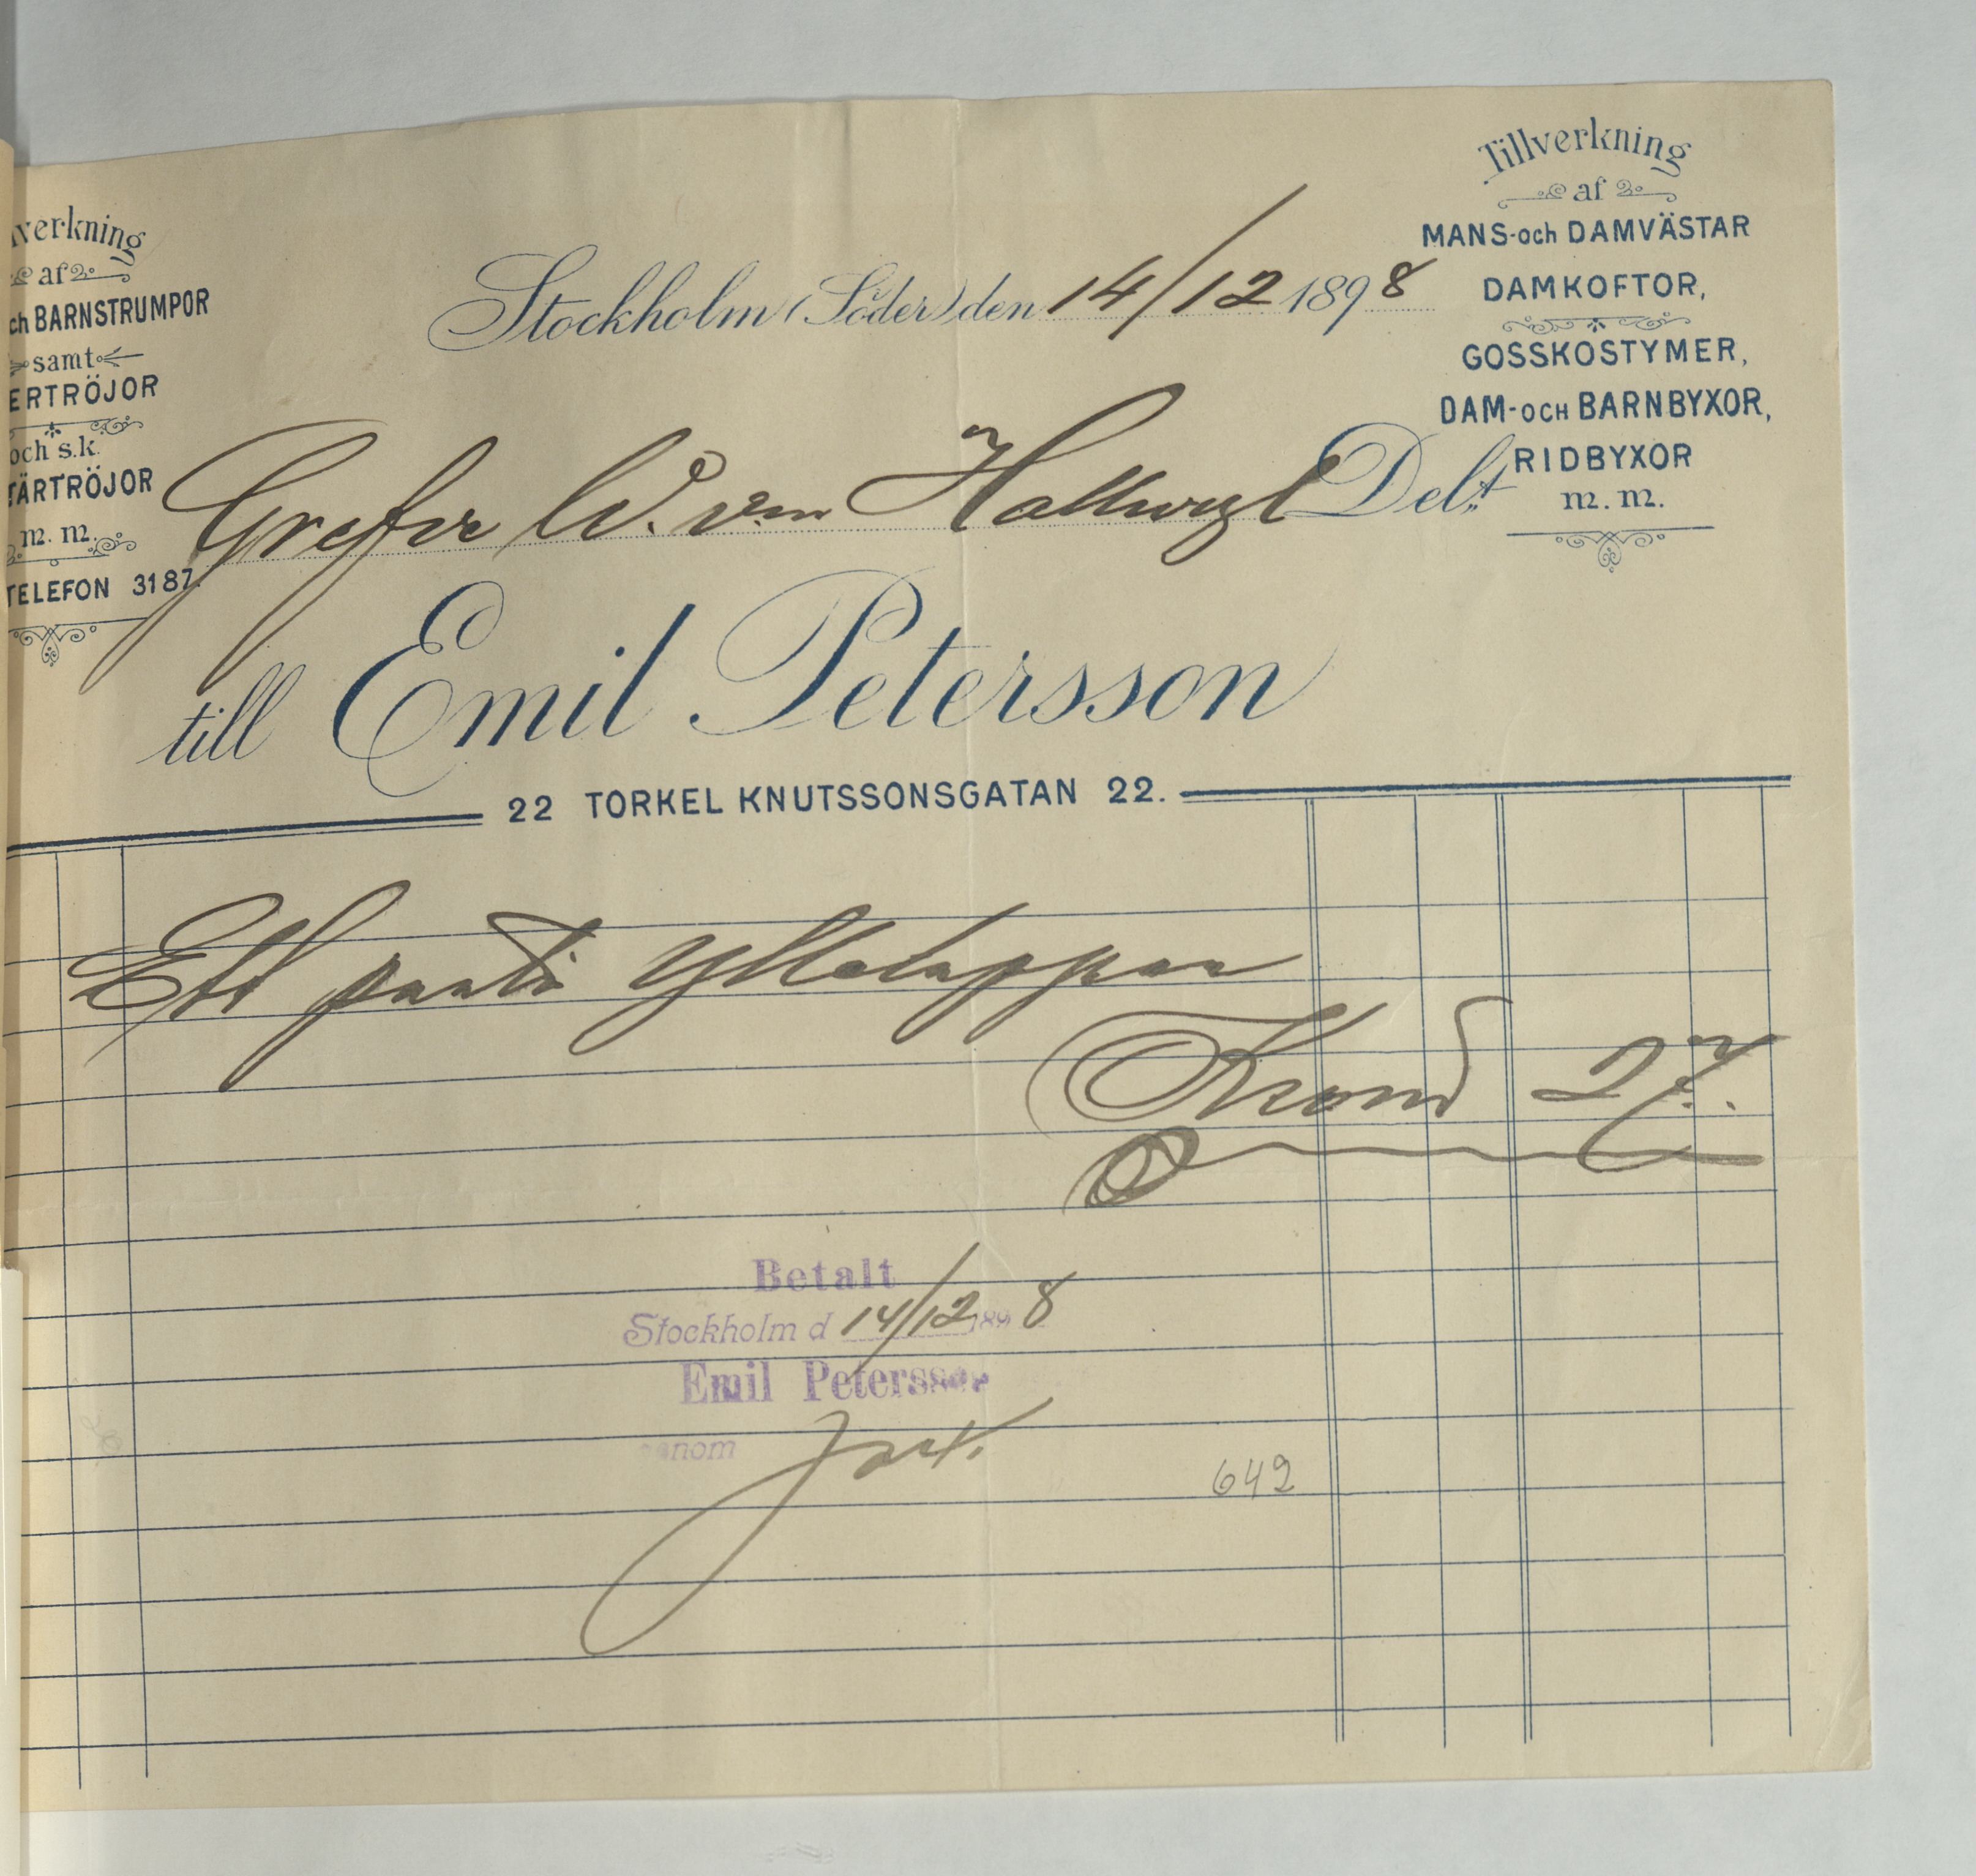 verkning
af
ch BARNSTRUMPOR
samt
ERTRÖJOR
och s.k.
TÄRTRÖJOR
m. m.
TELEFON 3187.
Tillverkning
af
MANS-och DAMVÄSTAR
DAMKOFTOR,
GOSSKOSTYMER,
DAM-och BARNBYXOR,
RIDBYXOR
m. m.
Stockholm (Söder) den 14/12 1898
W. von Hallwyl Debt
till Emil Petersson
22 TORKEL KNUTSSONSGATAN 22.
Ett parti Yllelappar
Kronor 27
Betalt
Stockholm d 14/12 1898
Emil Petersson
genom
642